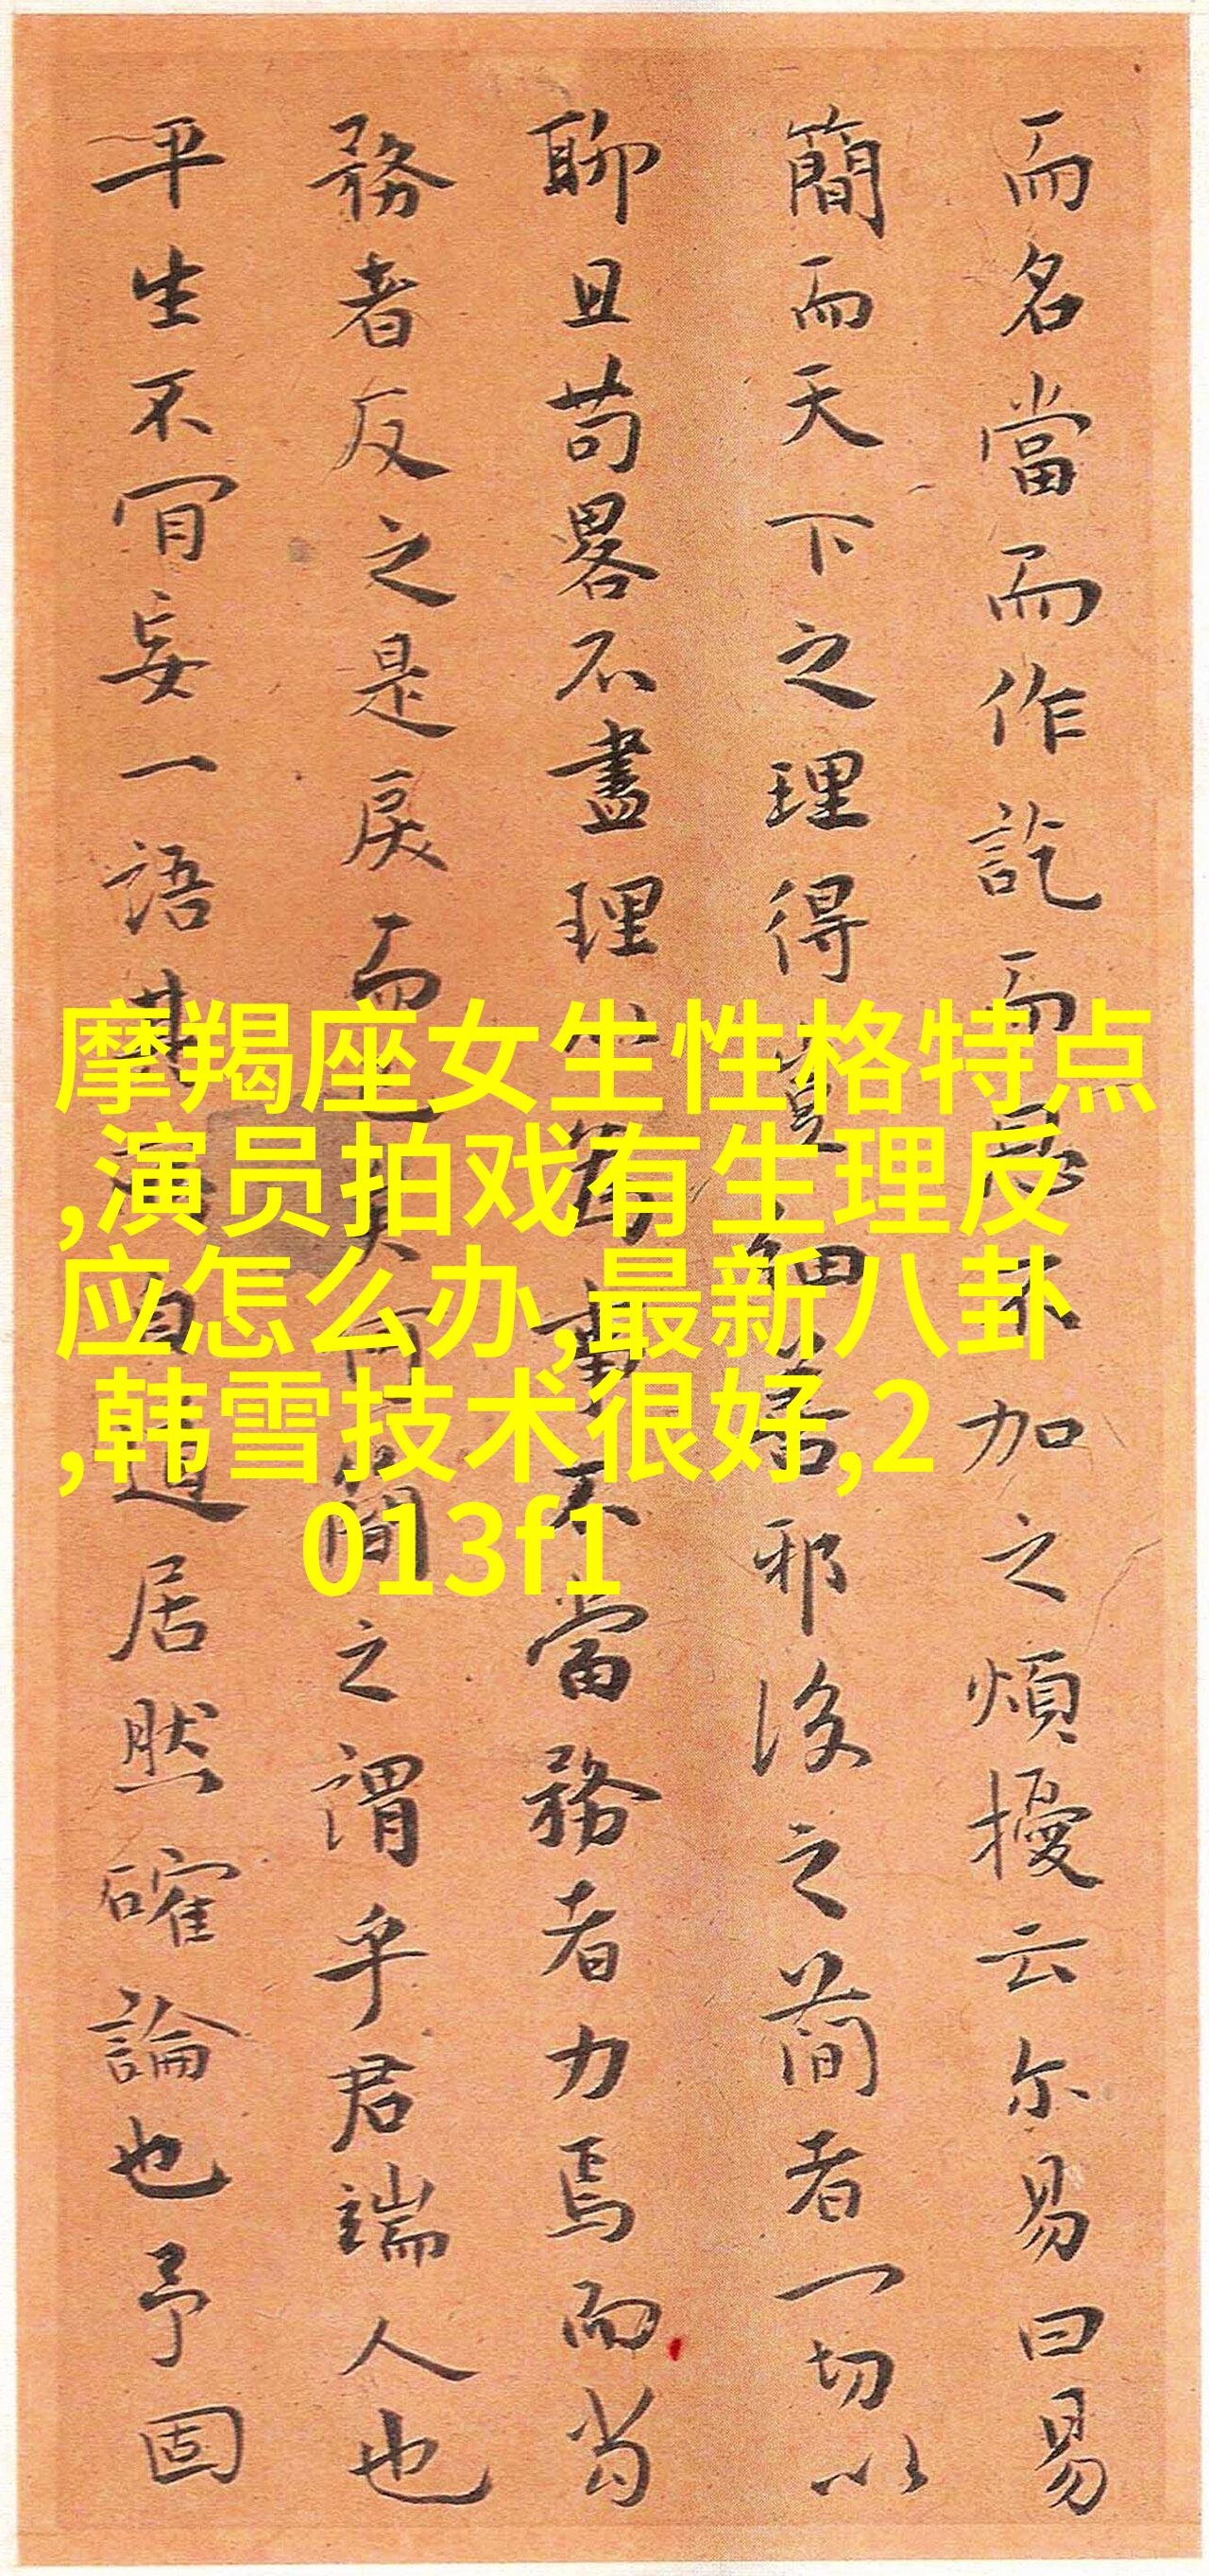 而名當而作訖而加之煩擾云尓易曰易
簡而天下之理得細若邪後之簡者一切以
聊且苟畧不盡理不當務者力焉而當
務者反之是戾而簡之謂乎君端人也
平生不肎妄一語其自道居然確論也予固
摩羯座女生性格特点
,演员拍戏有生理反
应怎么办,最新八卦
,韩雪技术很好,2
013f1